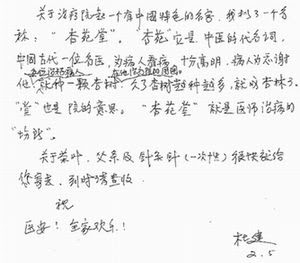 关于治疗院起一个有中国特色的名字，我拟了一个名
称："杏苑堂"。"杏苑"它是中医的代名词，
中国古代一位名医，为病人看病，十分高明，病人为示谢
他，就种一颗杏树，久了杏树越种越多，就成杏林了。
"堂"也是院的意思。"杏苑堂"就是医师治病的
"场所"。
关于茶叶、艾条及针灸针（一次性）很快就给
您寄去，到时请查收。
祝
医安！全家欢乐！
2.5